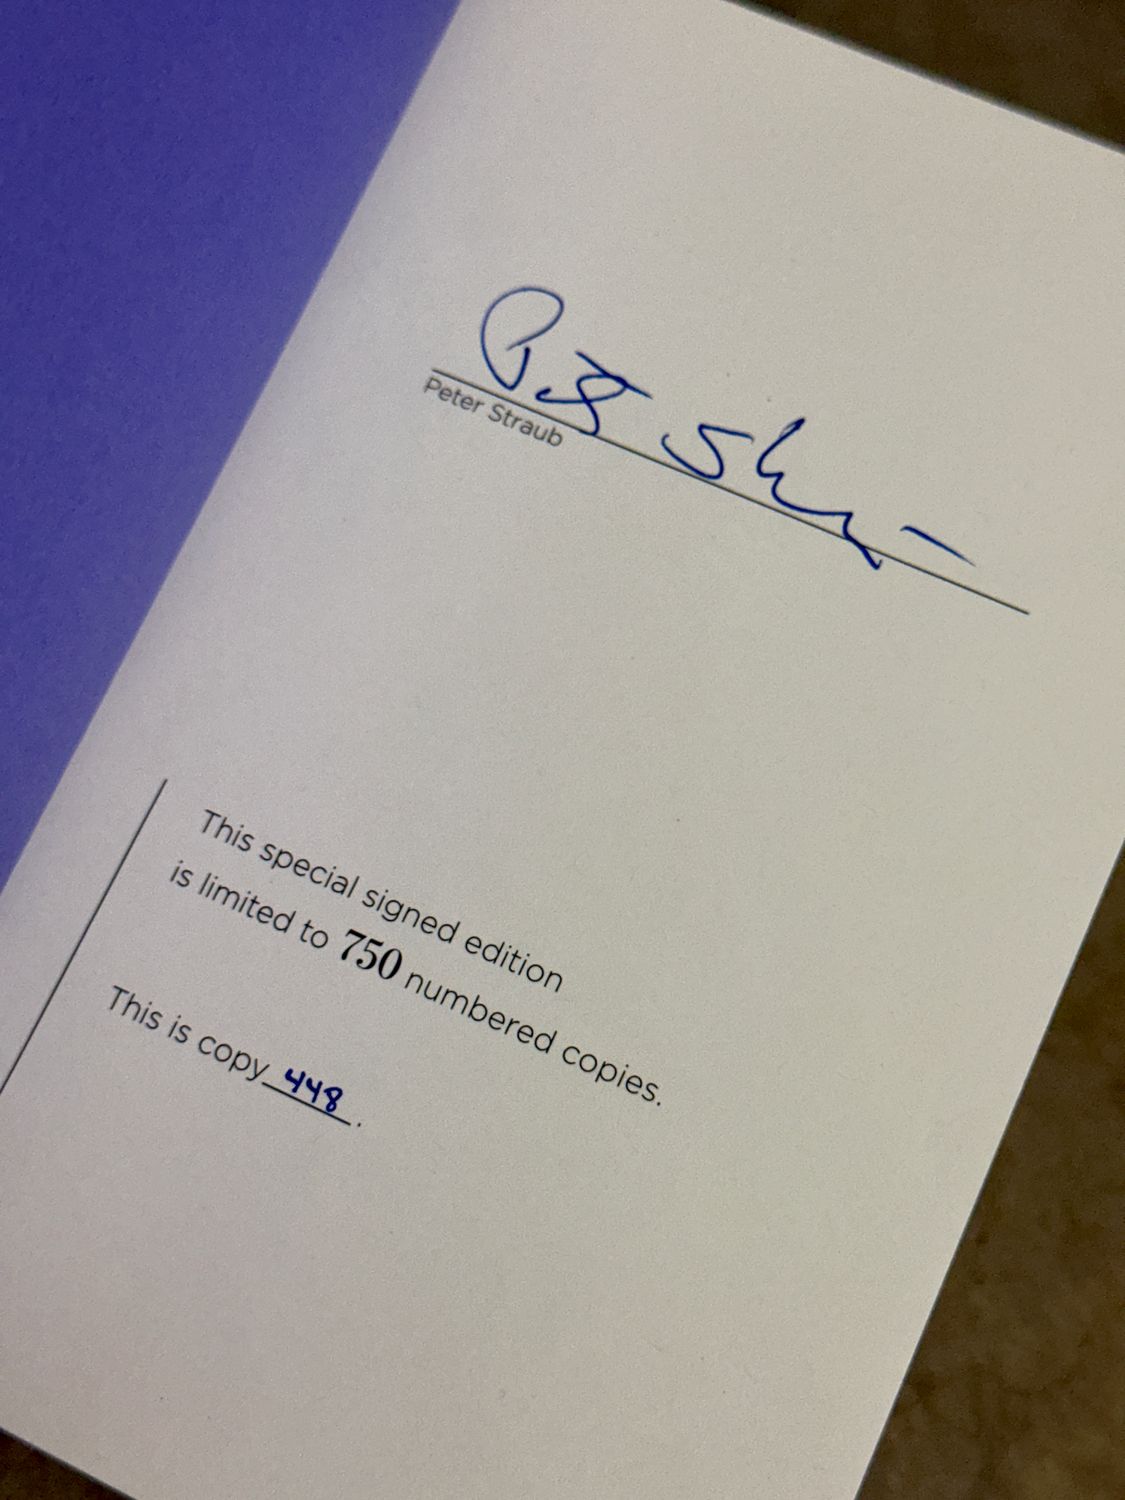 Peter Straub
Peter Straub
This special signed edition
is limited to 750 numbered copies.
This is copy 448.